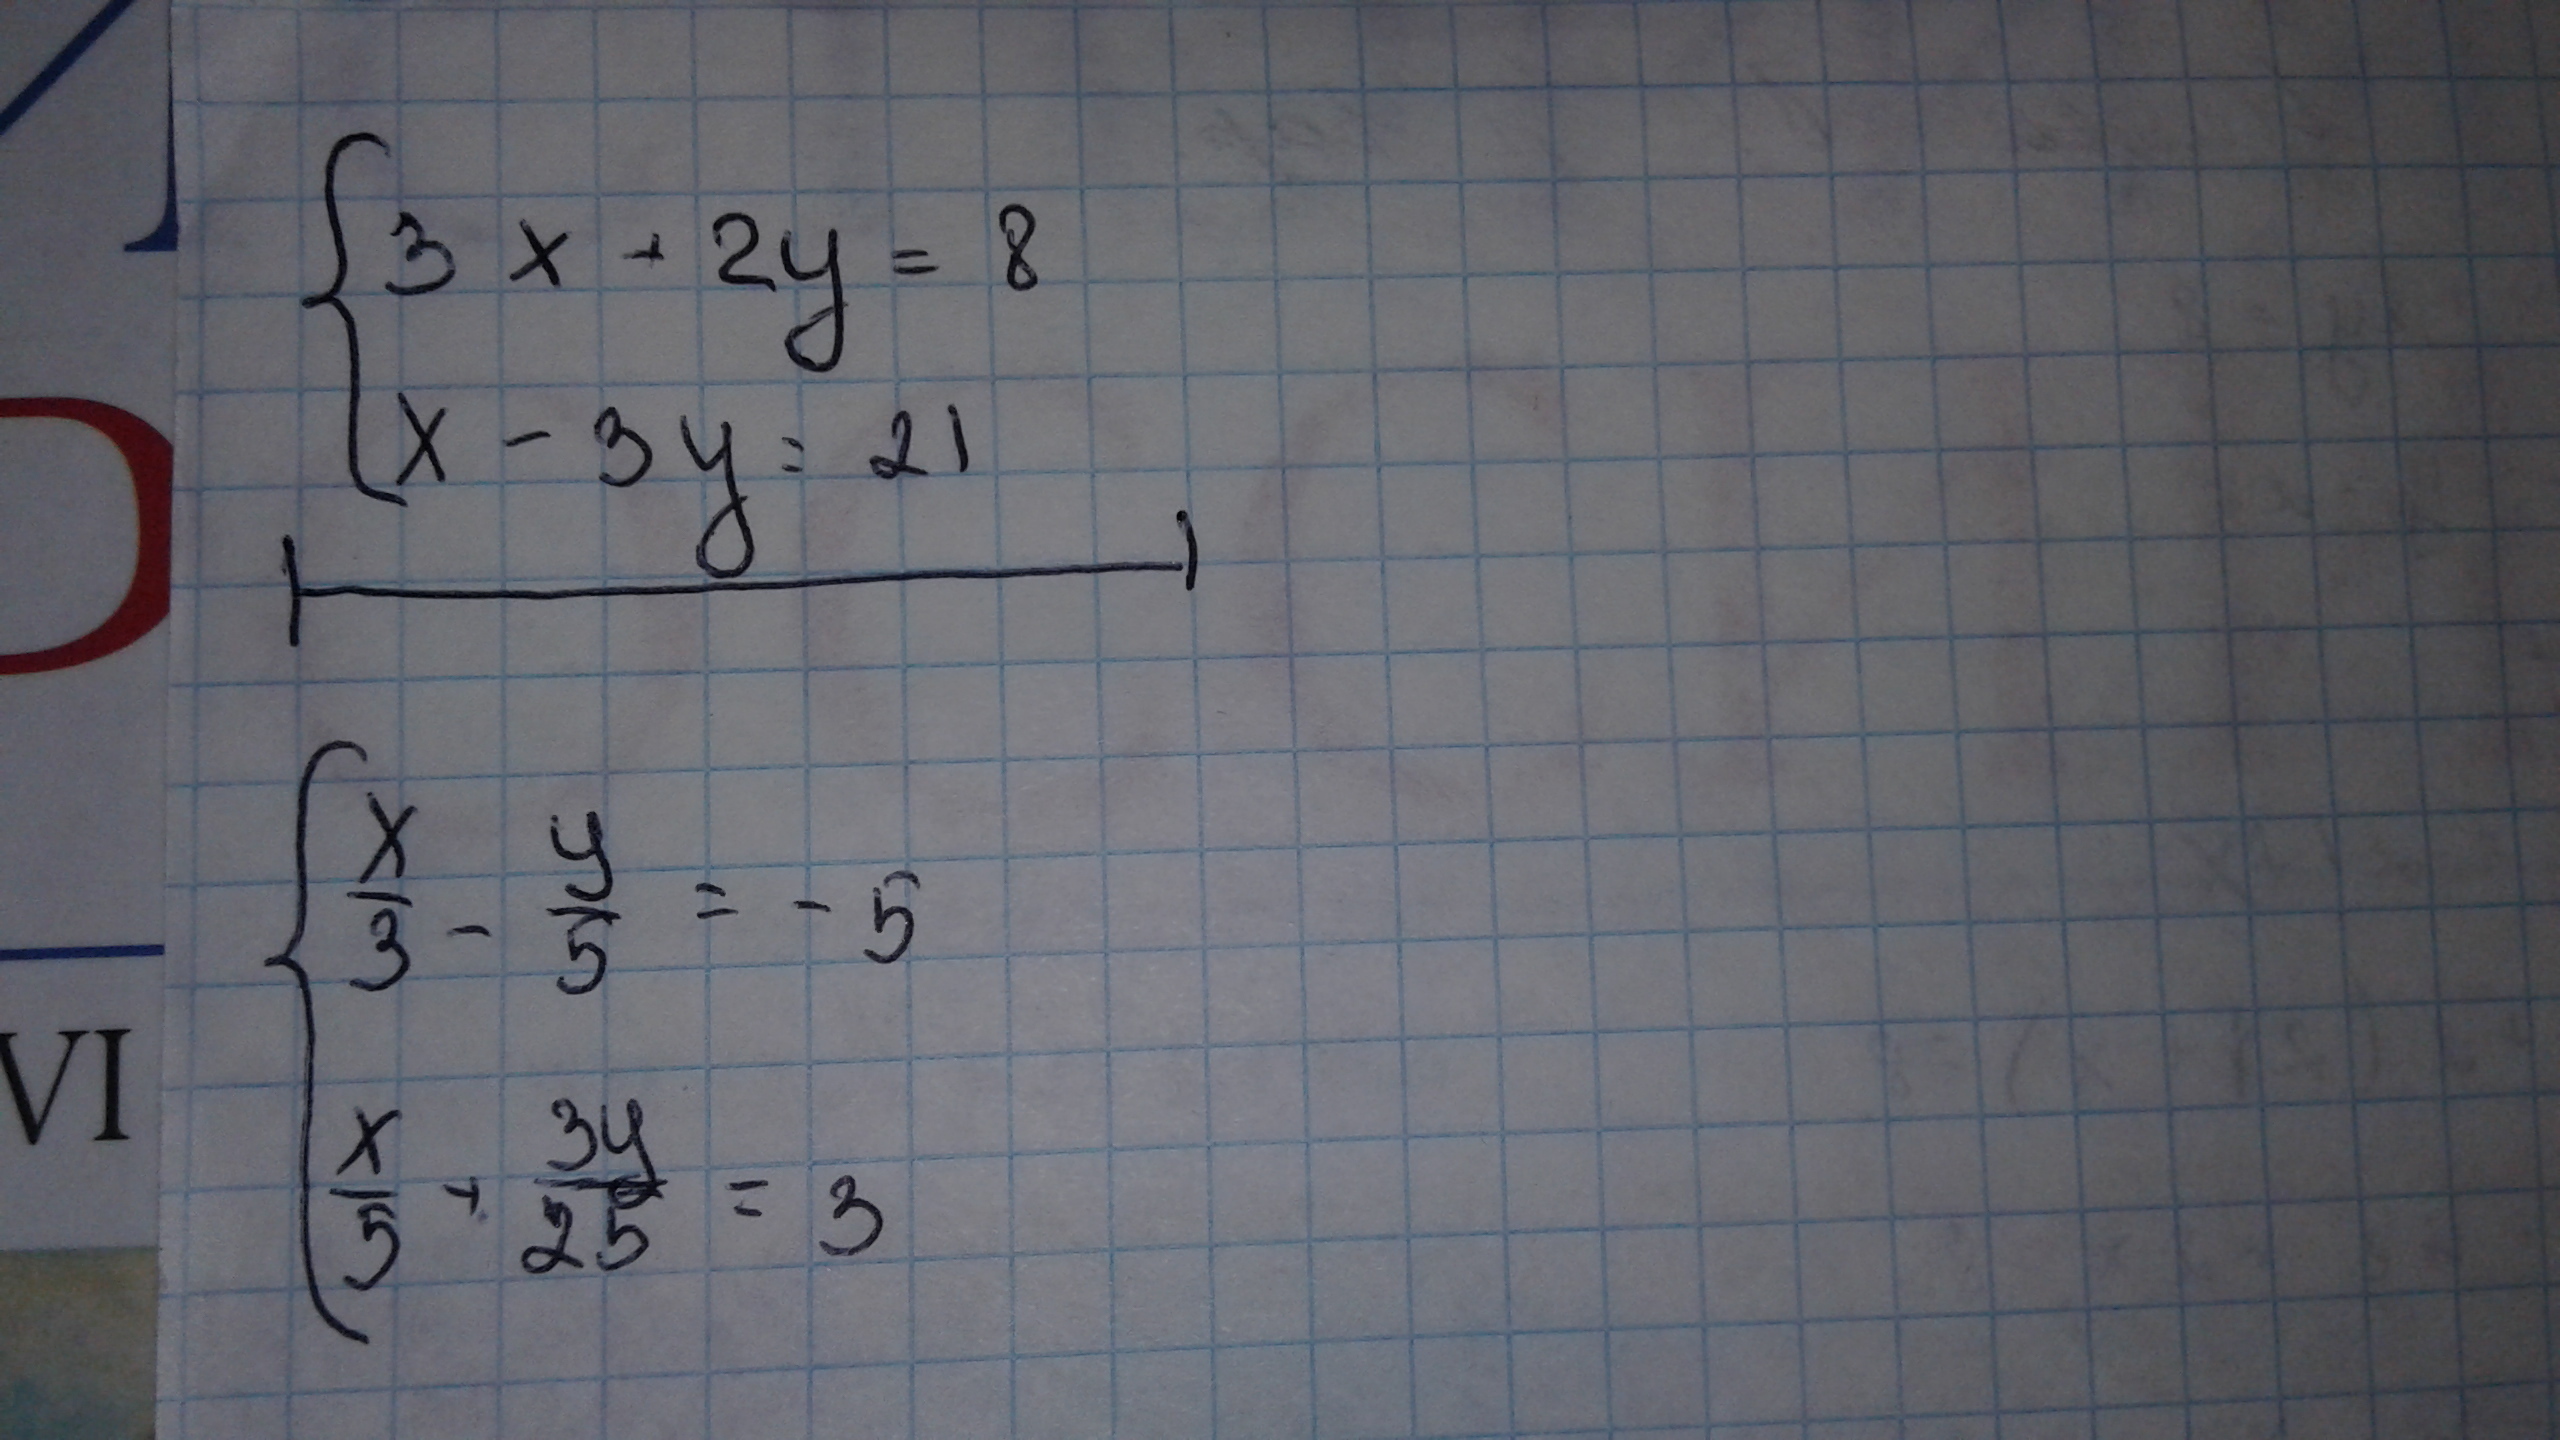 3x + 2y = 8
x - 3y = 21
x/3 - y/5 = - 5
x/5 + 3y/25 = 3
VI